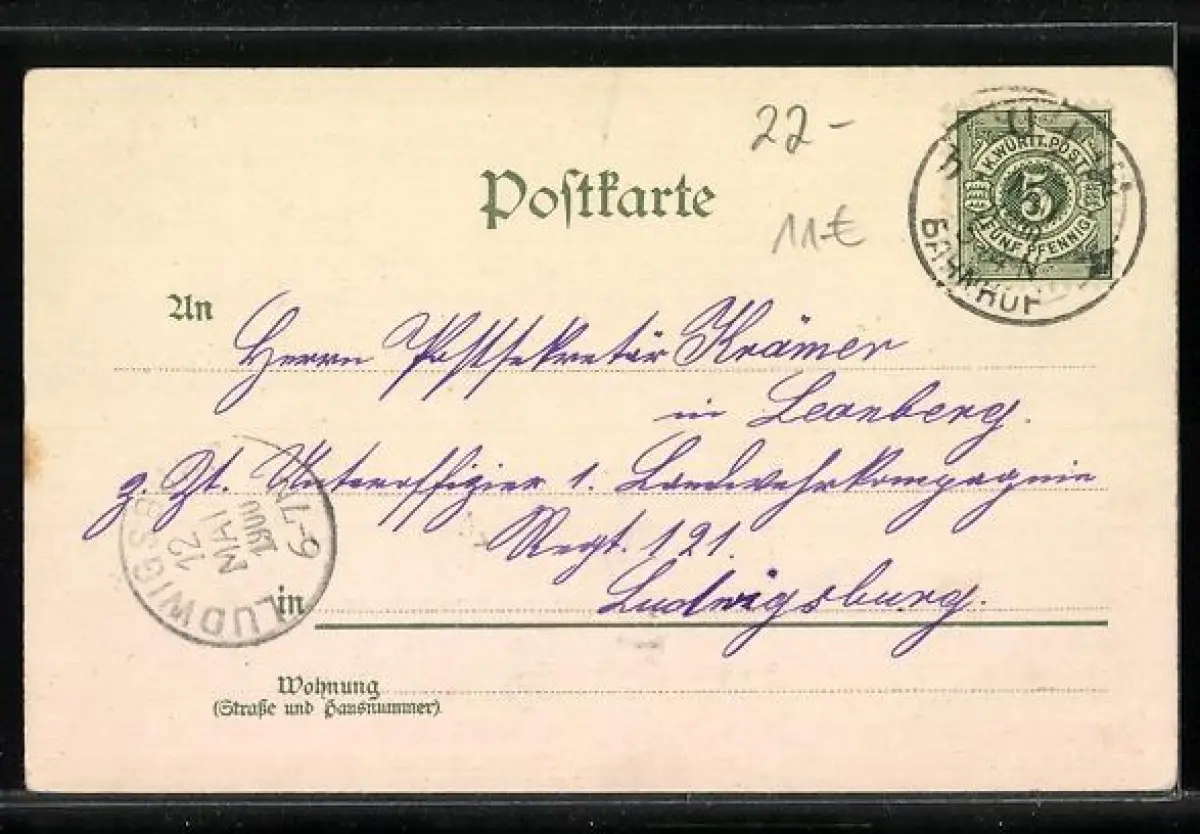 22-
Postkarte
11€
K. WÜRTT. POST
5
FÜNF PFENNIG
ULM
BAHNHOF
An
Herrn Postsekretär Krämer
in Leonberg.
z. Zt. Unteroffizier 1. Landwehrkompagnie
Regt. 121.
in Ludwigsburg.
LUDWIGSB
12
MAI
1900
6-7N
Wohnung
(Straße und Hausnummer)